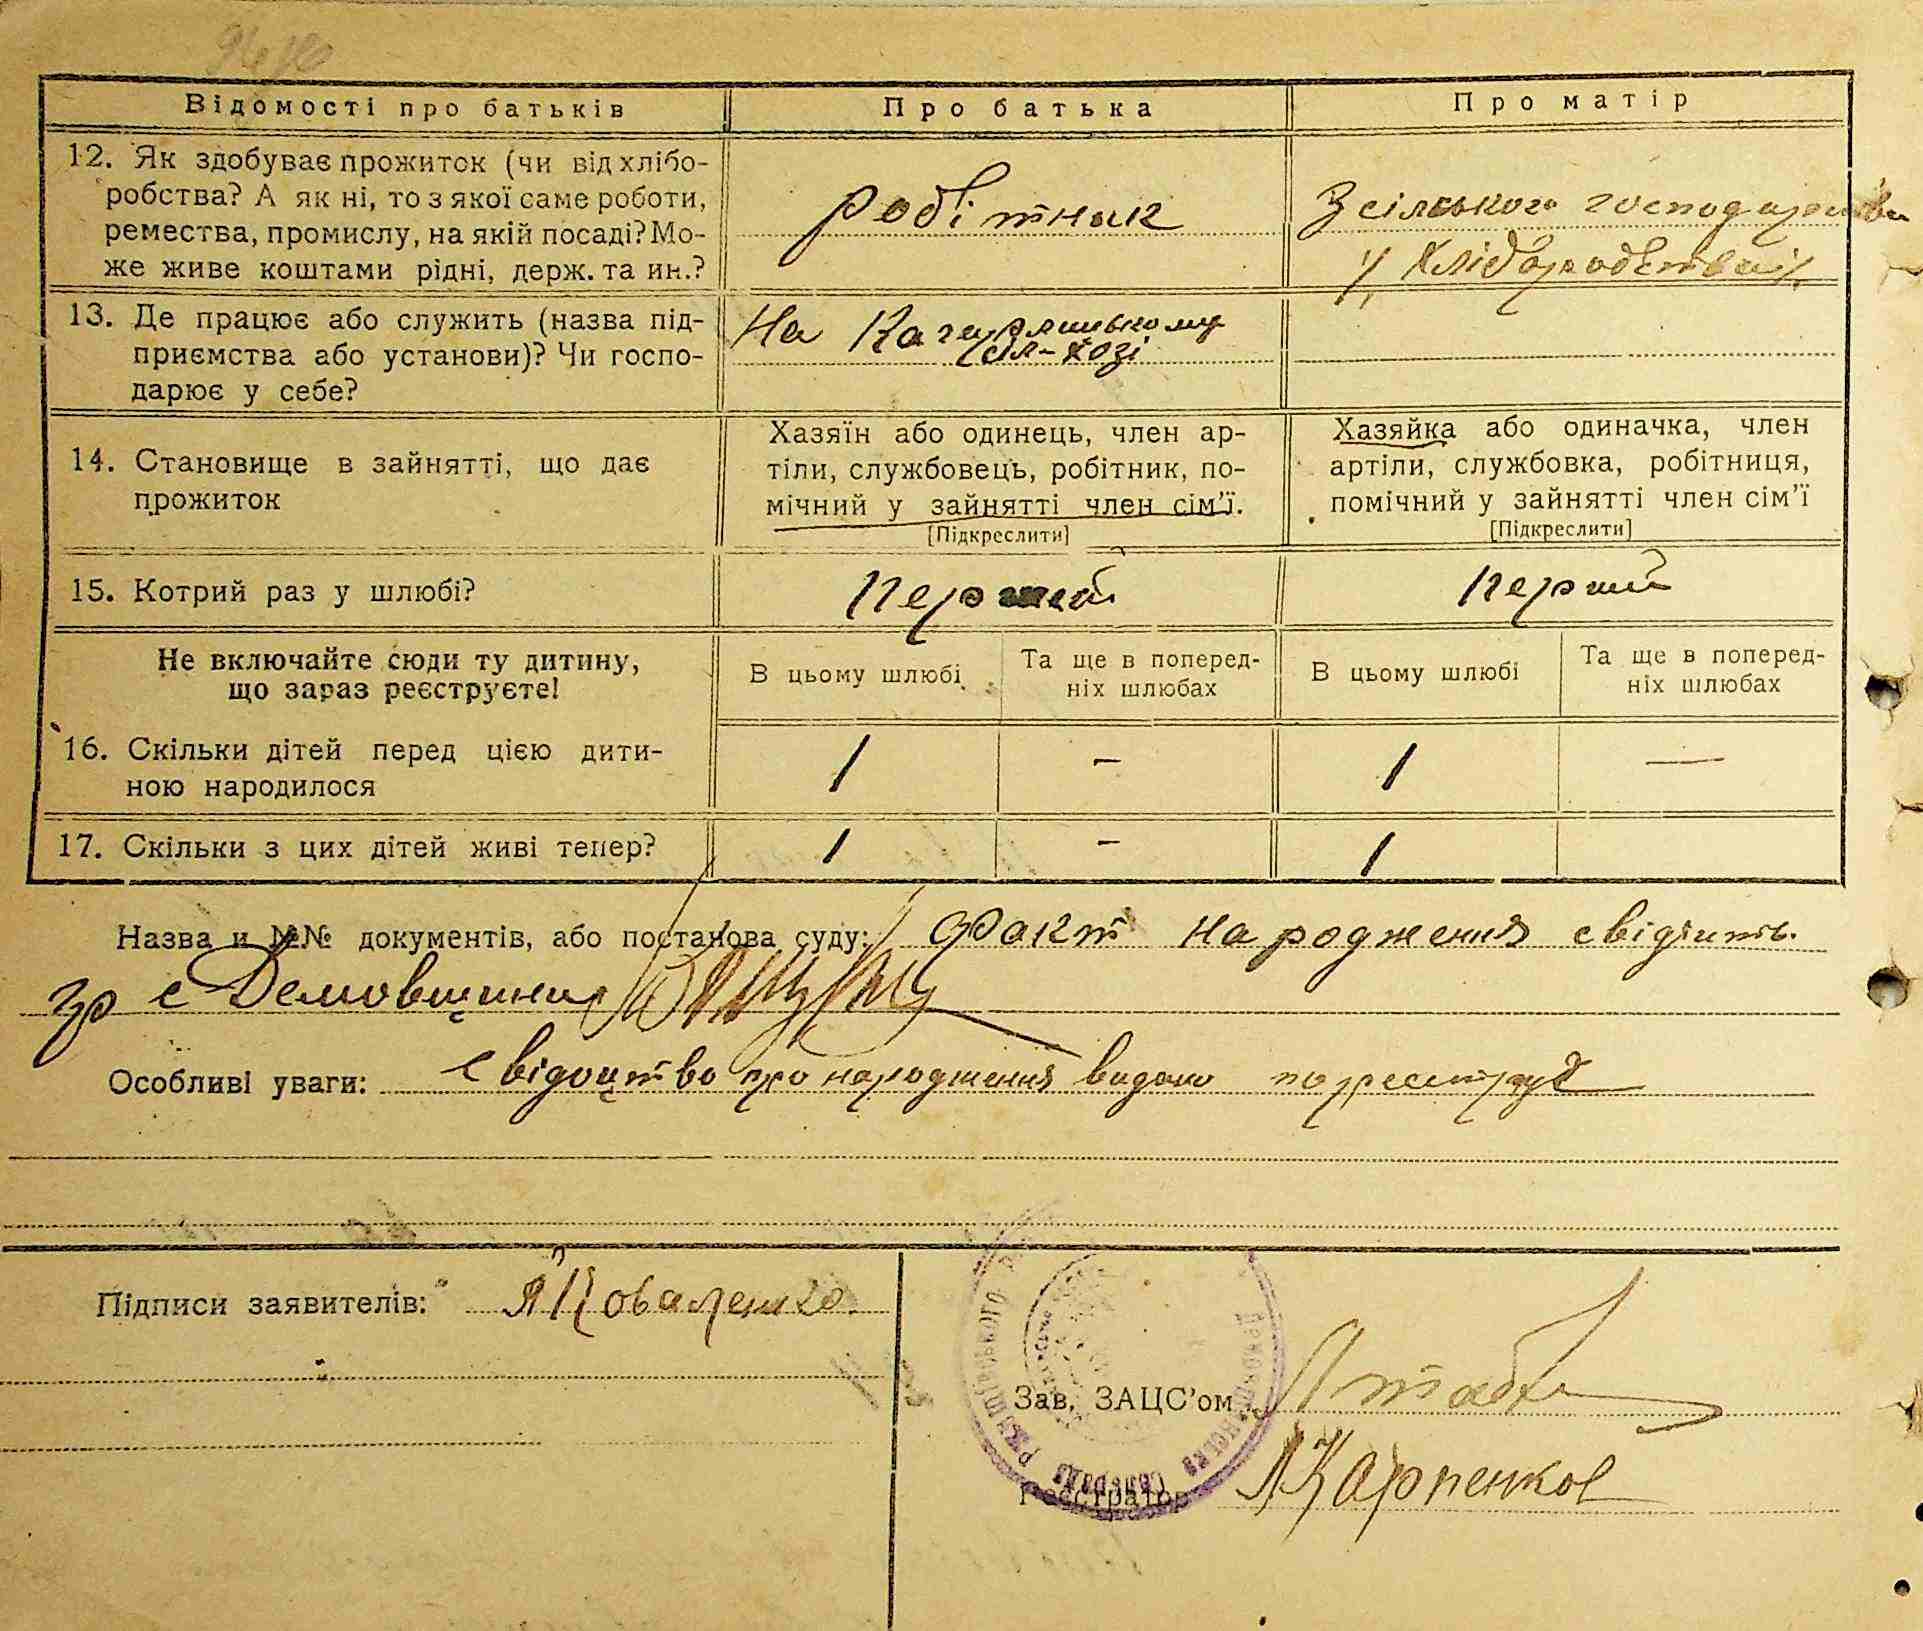 Відомості про батьків
Про батька
Про матір
12. Як здобуває прожиток (чи від хлібо-
робства? А як ні, то з якої саме роботи,
ремества, промислу, на якій посаді? Мо-
же живе коштами рідні, держ. та ин.?
робітник
З сільського господарства
/Хліборобства/.
13. Де працює або служить (назва під-
приємства або установи)? Чи госпо-
дарює у себе?
На
сіл-Хозі
14. Становище в зайнятті, що дає
прожиток
Хазяїн або одинець, член ар-
тіли, службовець, робітник, по-
мічний у зайнятті член сім'ї.
[Підкреслити]
Хазяйка або одиначка, член
артіли, службовка, робітниця,
помічний у зайнятті член сім'ї
[Підкреслити]
15. Котрий раз у шлюбі?
перший
перший
Не включайте сюди ту дитину,
що зараз реєструєте!
В цьому шлюбі
Та ще в поперед-
ніх шлюбах
В цьому шлюбі
Та ще в поперед-
ніх шлюбах
16. Скільки дітей перед цією дити-
ною народилося
1 — 1 —
17. Скільки з цих дітей живі тепер?
1 — 1
Назва и №№ документів, або постанова суду: Факт народження свідчить
гр с Демовщини
Особливі уваги: Свідоцтво про народження видано
Підписи заявителів: Я Коваленко
Зав. ЗАЦС'ом
Реєстратор Карпенко